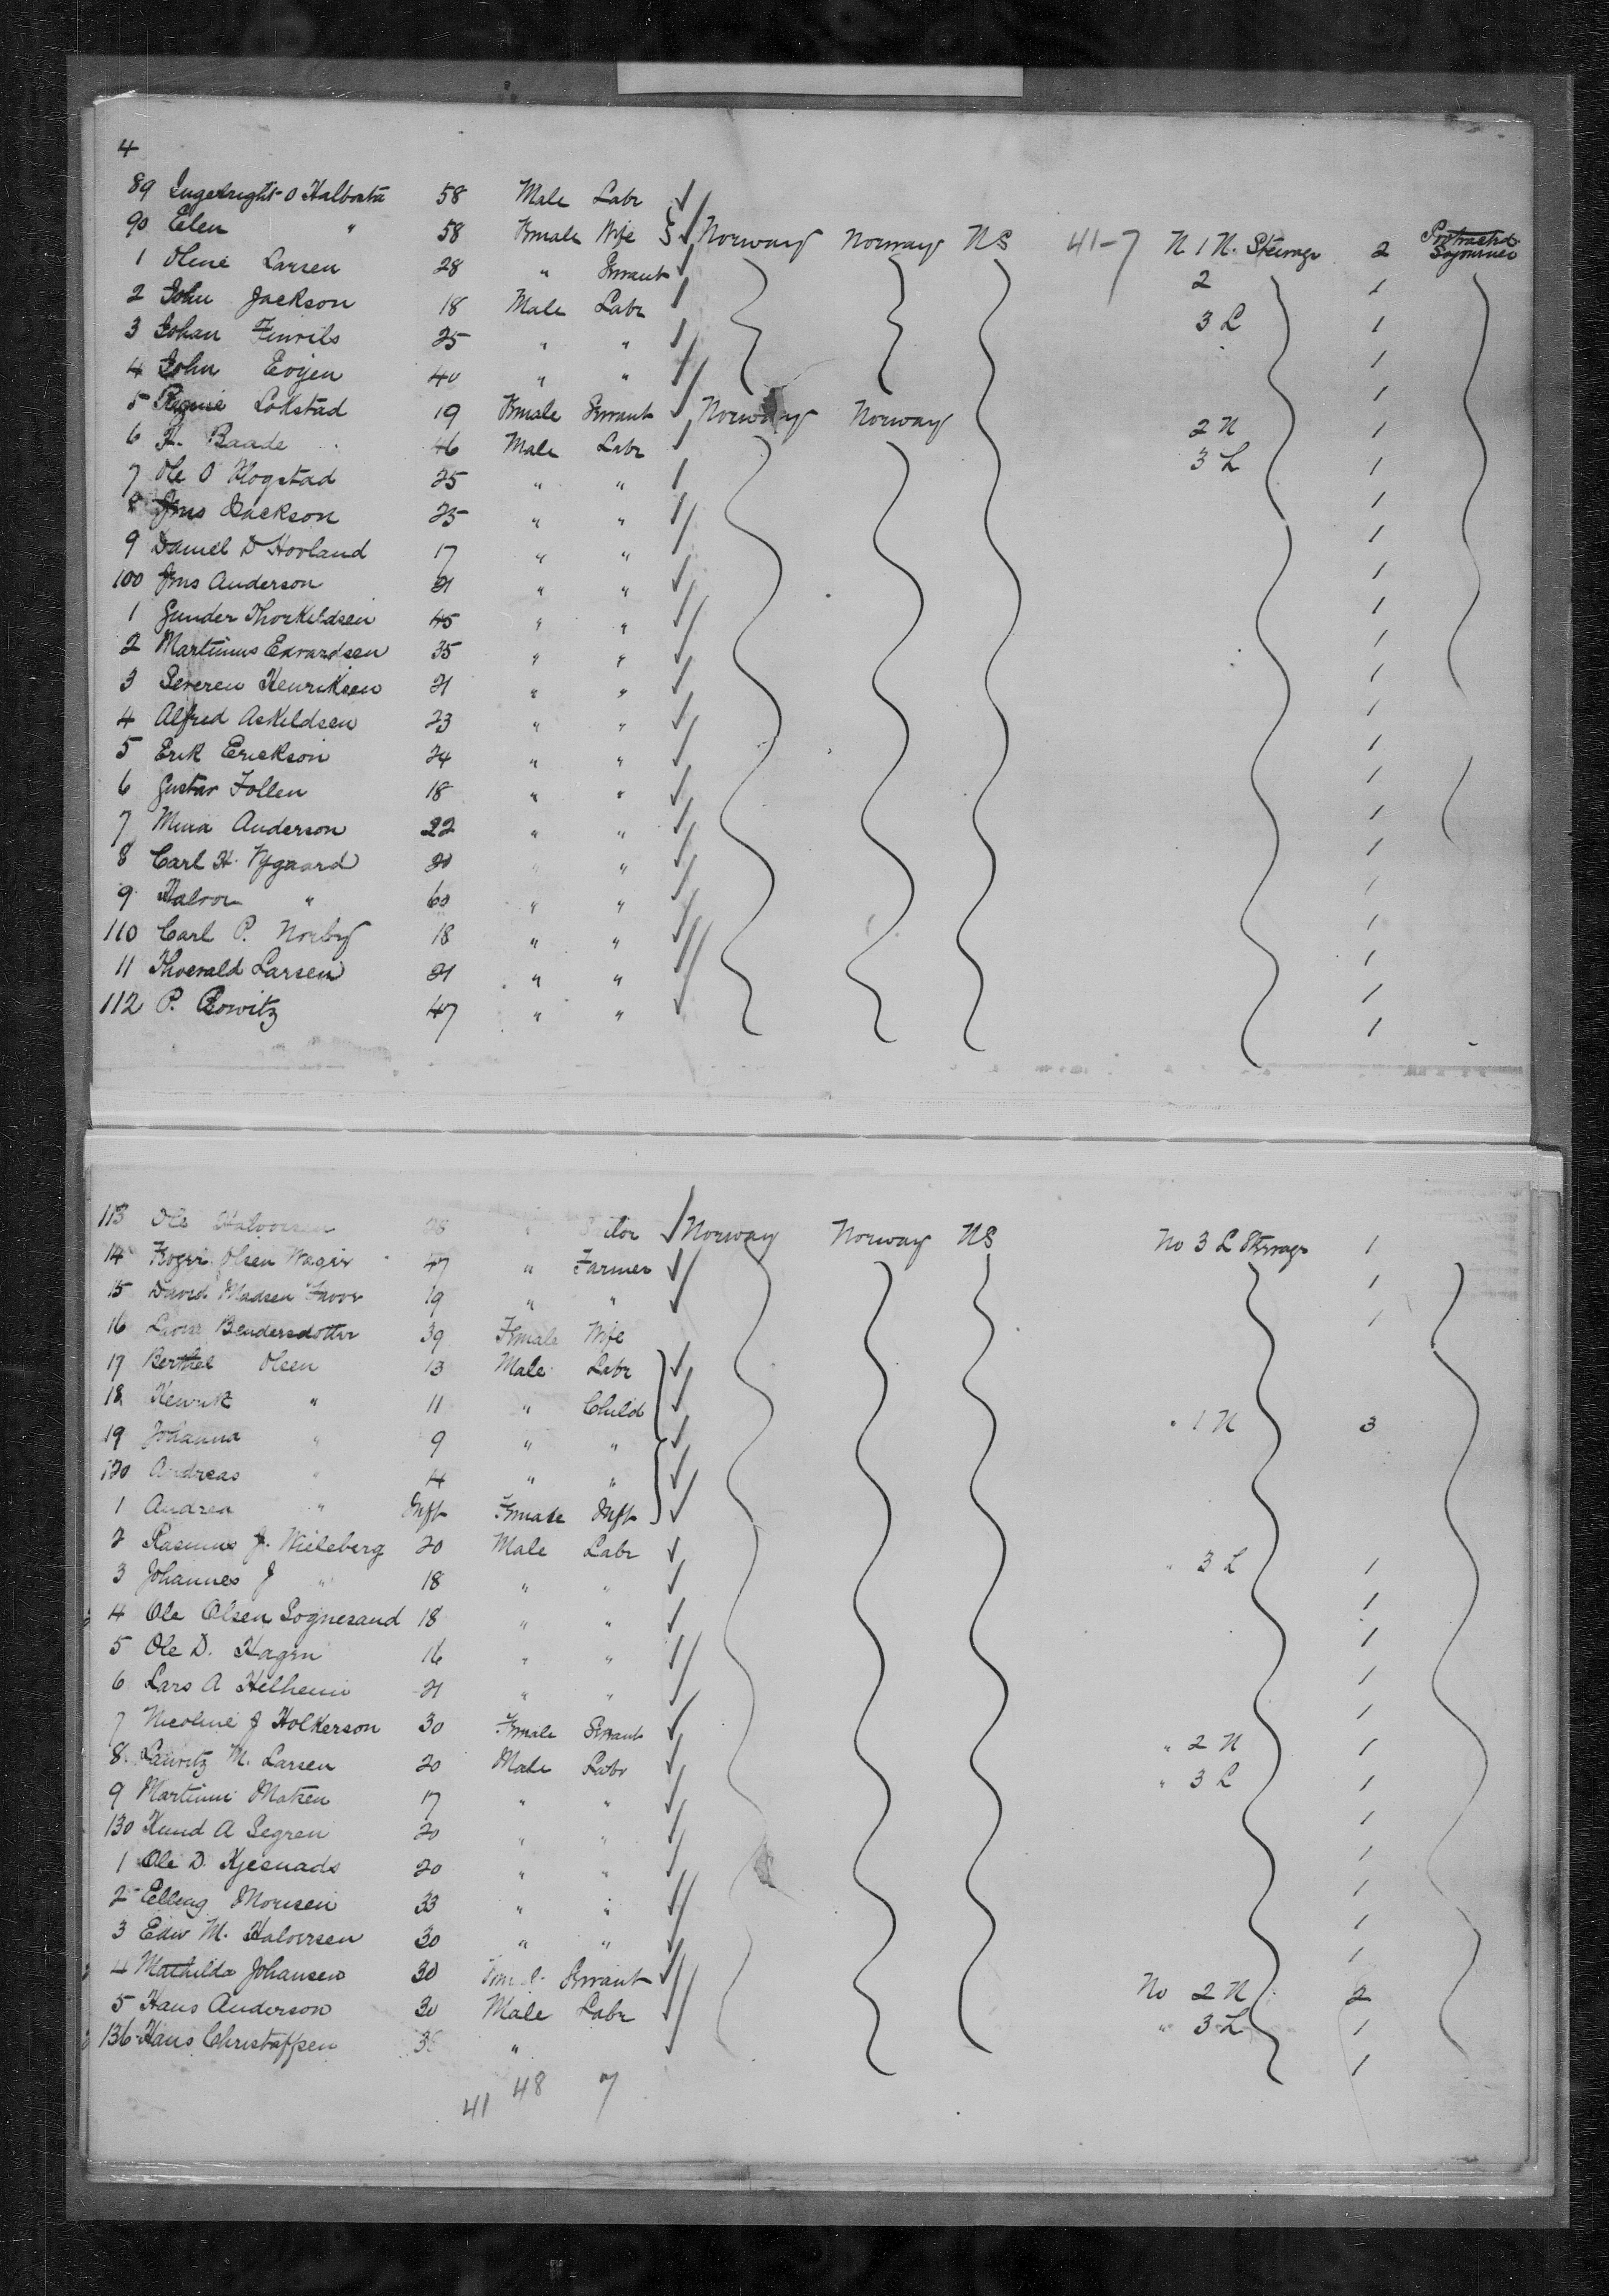 4
89 Ingebright O Halbosta 58 Male Labr
90 Elen " 58 Female Wife Norway Norway NS 41-7 N 1 N. Steerage 2 Protracted Sojourner
1 Oline Larsen 28 " Servant 2 1
2 John Jackson 18 Male Labr 3 L 1
3 Johan Finrils 25 " " 1
4 John Evjen 40 " " 1
5 Lokstad 19 Female Servant Norway Norway 2 N 1
6 K. Baade 46 Male Labr 3 L 1
7 Ole O Klogstad 25 " " 1
8 Jms Isackson 25 " " 1
9 Daniel D Hovland 17 " " 1
100 Jms Anderson 21 " " 1
1 Gunder Thorkildsen 45 " " 1
2 Martinus Edvardsen 35 " " 1
3 Severen Henriksen 21 " " 1
4 Alfred Askildsen 23 " " 1
5 Erik Erickson 24 " " 1
6 Gustav Follen 18 " " 1
7 Mina Anderson 22 " " 1
8 Carl H. Nygaard 20 " " 1
9 Halvor " 60 " " 1
110 Carl P. Norby 18 " " 1
11 Thorvald Larsen 21 " " 1
112 P. Bowitz 47 " " 1
113 Ole Halvorsen 28 " Norway Norway NS No 3 L Steerage 1
14 Roger Olsen Wager 47 " Farmer 1
15 David Madsen 19 " " 1
16 Bendersdotter 39 Female Wife
17 Berthel Olsen 13 Male Labr
18 Henrik " 11 " Child " 1 N 3
19 Johanna " 9 " "
120 Andreas " 4 " "
1 Andrea " Inft Female Inft
2 Rasmus J. Nieleberg 20 Male Labr " 3 L 1
3 Johannes J " 18 " " 1
4 Ole Olsen Sognesand 18 " " 1
5 Ole D. Hagen 16 " " 1
6 Lars A Helhem 21 " " 1
7 Nicoline J Holkerson 30 Female Servant " 2 N 1
8 Lauritz M. Larsen 20 Male Labr " 3 L 1
9 Martinus Matsen 17 " " 1
130 Knud A Segren 20 " " 1
1 Ole D. Kjesnads 20 " " 1
2 Elling Monsen 33 " " 1
3 Edw M. Halvorsen 30 " " 1
4 Mathilda Johansen 30 Female Servant No 2 N 2
5 Hans Anderson 30 Male Labr " 3 L 1
136 Hans Christoffsen " 1
41 48 7